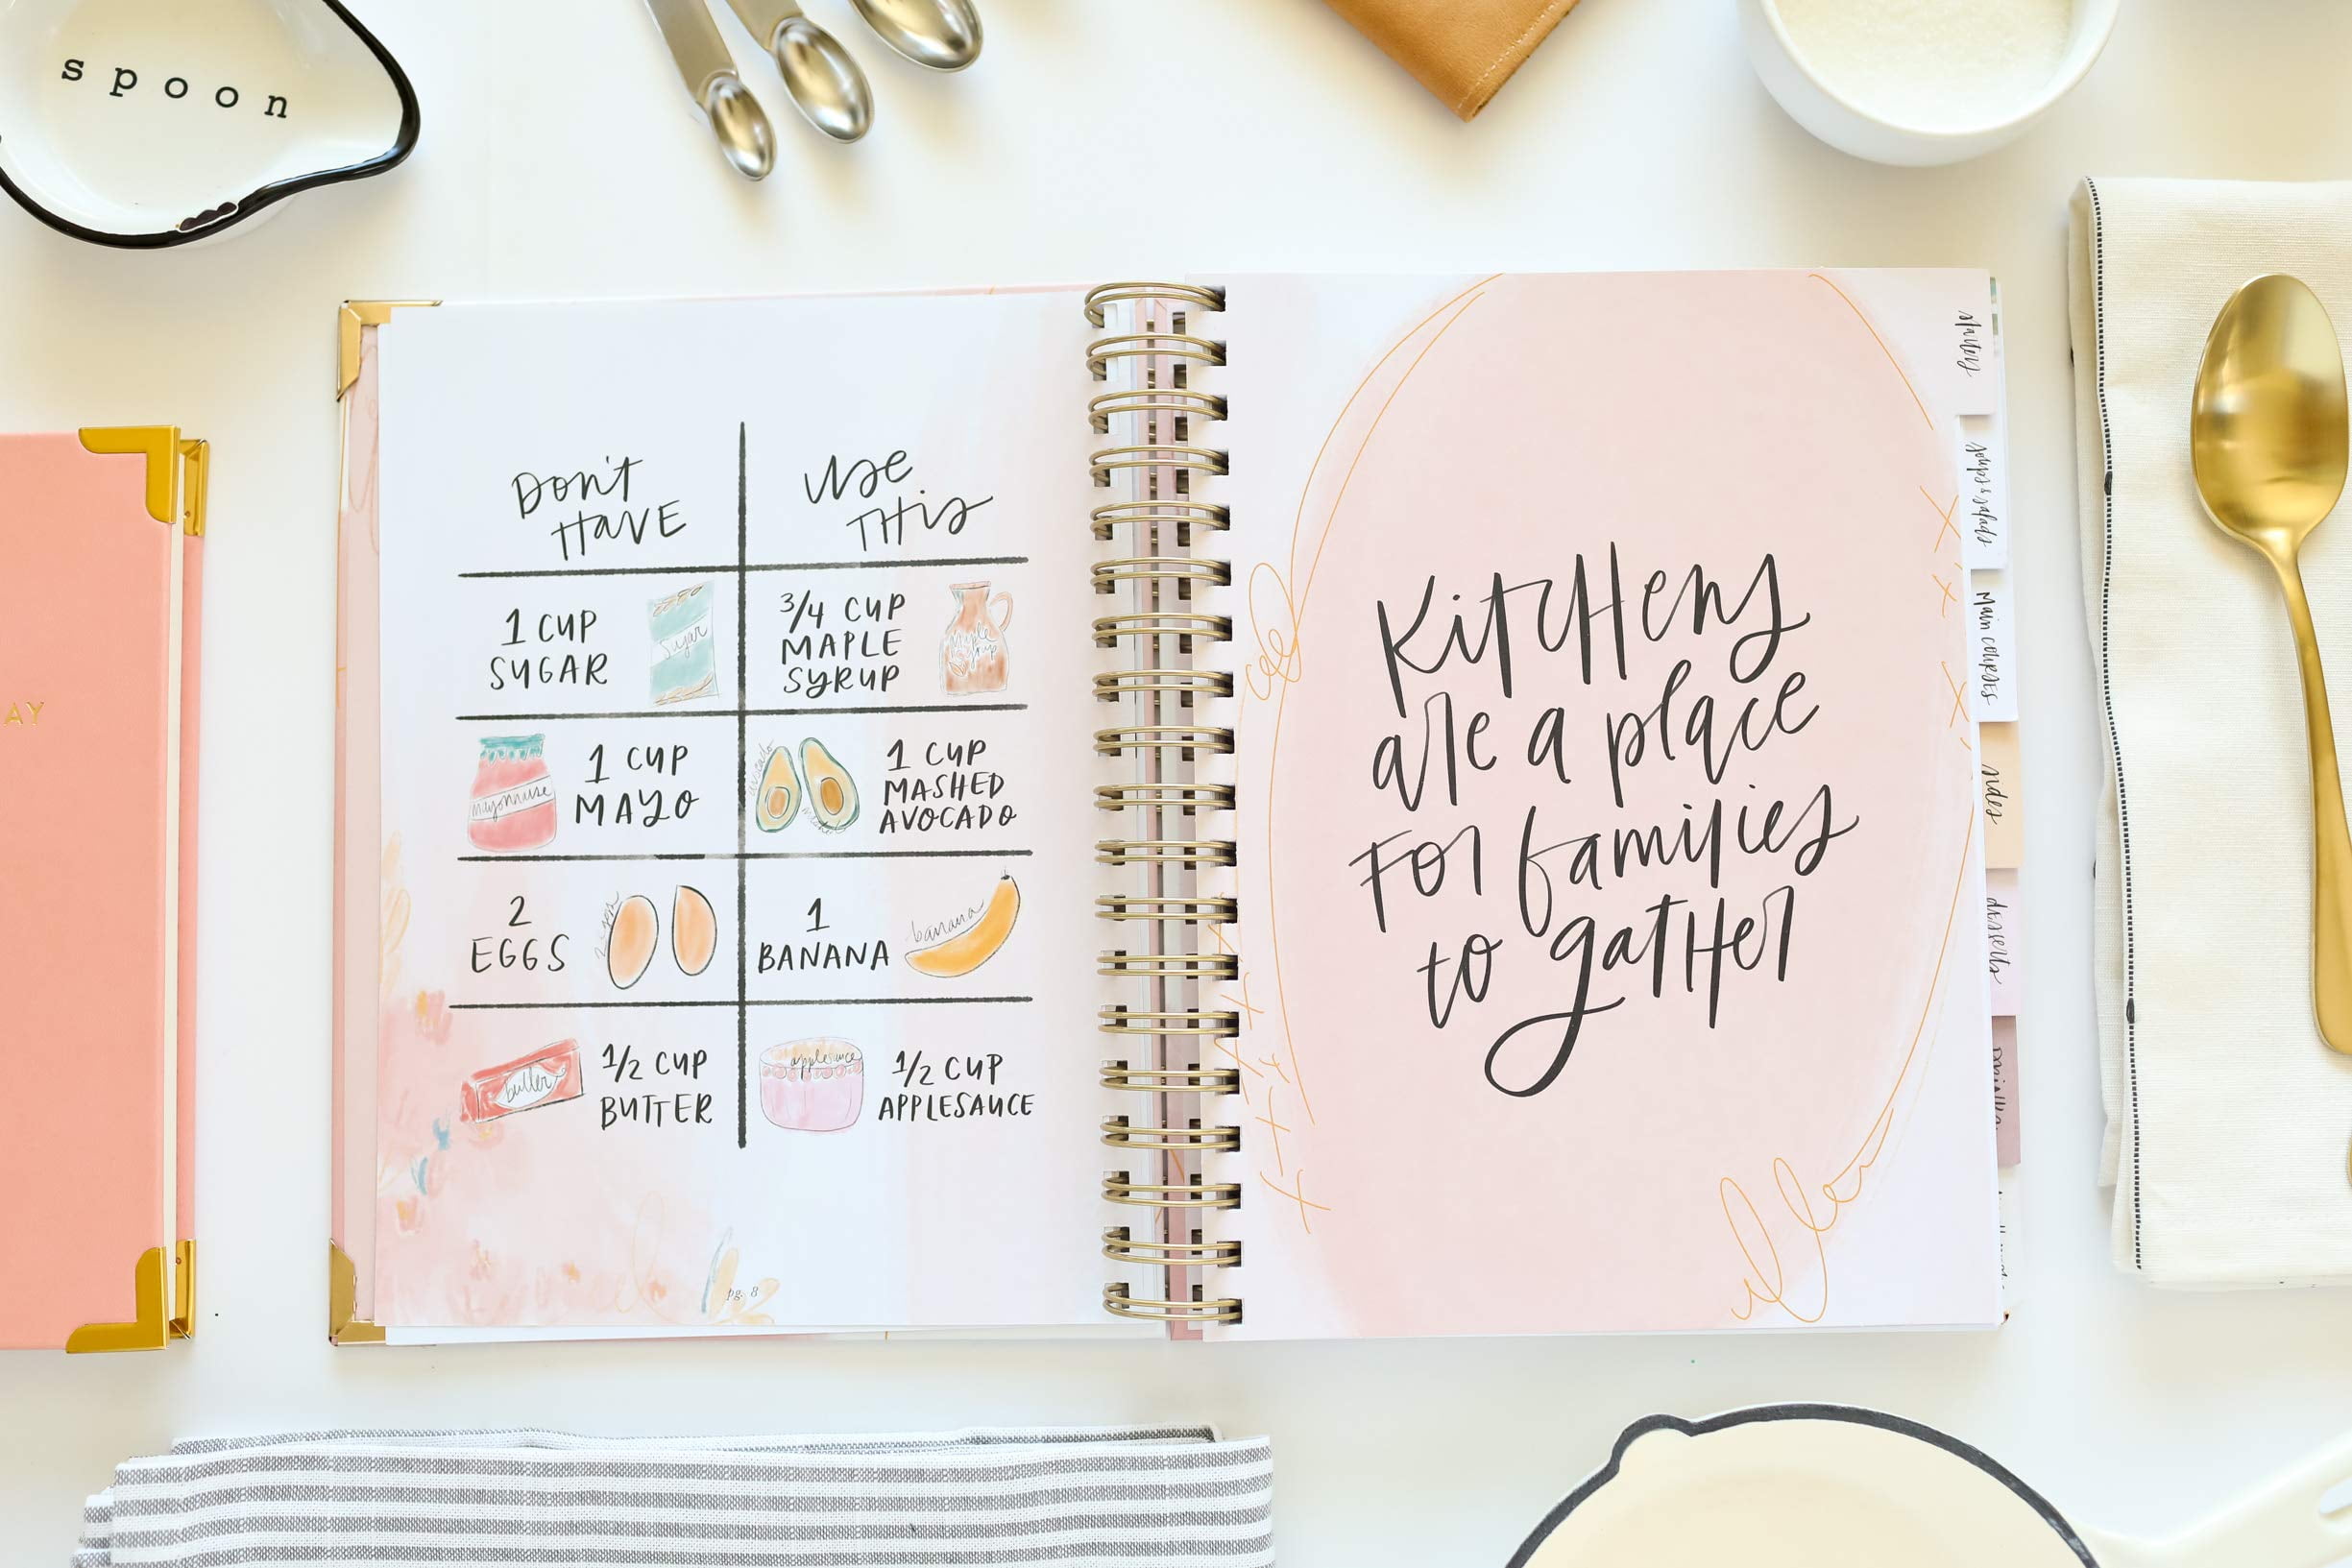 spoon
AY
Don't
Have
Use
This
1 CUP
SUGAR
Sugar
3/4 CUP
MAPLE
SYRUP
maple
syrup
mayonnaise
1 CUP
MAYO
avocado
1 CUP
MASHED
AVOCADO
2
EGGS
2 eggs
1
BANANA
banana
butter
1/2 CUP
BUTTER
applesauce
1/2 CUP
APPLESAUCE
pg. 8
Kitchens
are a place
For families
to gather
starters
soups & salads
Main courses
sides
desserts